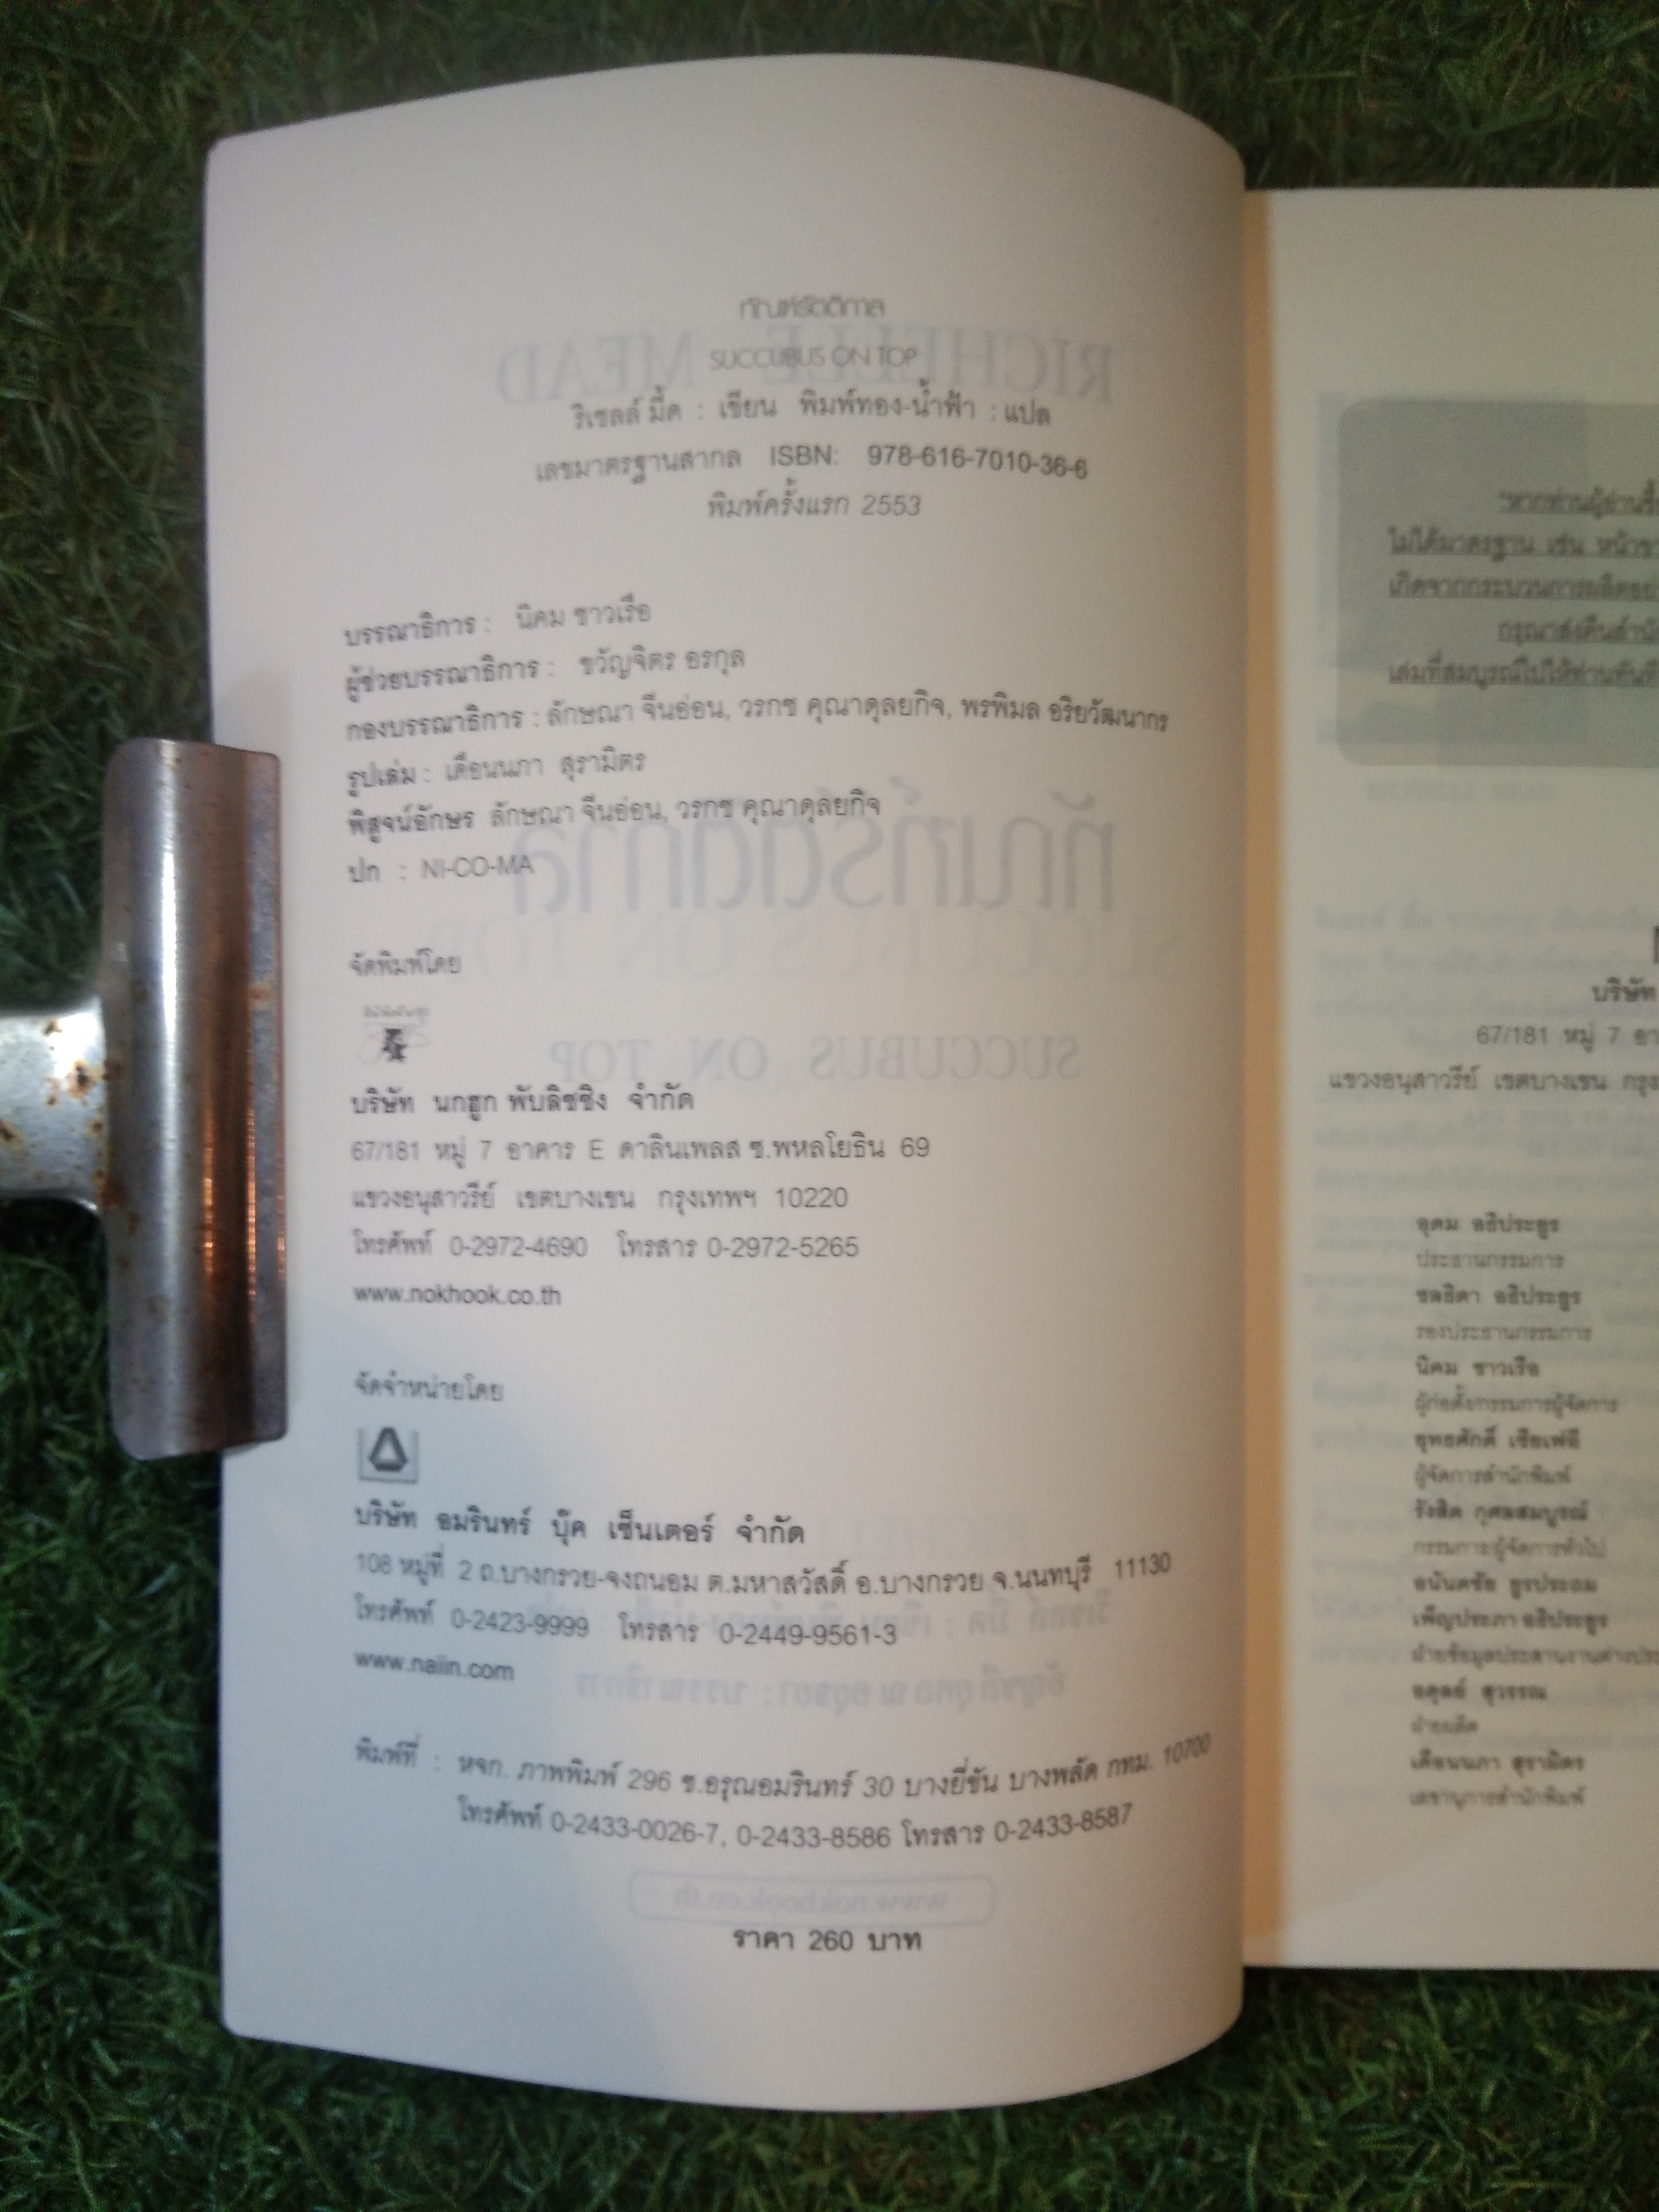 ทัณฑ์รัตติกาล
SUCCUBUS ON TOP
ริเชลล์ มี้ด : เขียน พิมพ์ทอง-น้ำฟ้า : แปล
เลขมาตรฐานสากล ISBN: 978-616-7010-36-6
พิมพ์ครั้งแรก 2553
บรรณาธิการ : นิคม ชาวเรือ
ผู้ช่วยบรรณาธิการ : ขวัญจิตร อรกุล
กองบรรณาธิการ : ลักษณา จีนอ่อน, วรกช คุณาดุลยกิจ, พรพิมล อริยวัฒนากร
รูปเล่ม : เดือนนภา สุรามิตร
พิสูจน์อักษร ลักษณา จีนอ่อน, วรกช คุณาดุลยกิจ
ปก : NI-CO-MA
จัดพิมพ์โดย
บริษัท นกฮูก พับลิชชิง จำกัด
67/181 หมู่ 7 อาคาร E ดาลินเพลส ซ.พหลโยธิน 69
แขวงอนุสาวรีย์ เขตบางเขน กรุงเทพฯ 10220
โทรศัพท์ 0-2972-4690 โทรสาร 0-2972-5265
www.nokhook.co.th
จัดจำหน่ายโดย
บริษัท อมรินทร์ บุ๊ค เซ็นเตอร์ จำกัด
108 หมู่ที่ 2 ถ.บางกรวย-จงถนอม ต.มหาสวัสดิ์ อ.บางกรวย จ.นนทบุรี 11130
โทรศัพท์ 0-2423-9999 โทรสาร 0-2449-9561-3
www.naiin.com
พิมพ์ที่ : หจก. ภาพพิมพ์ 296 ซ.อรุณอมรินทร์ 30 บางยี่ขัน บางพลัด กทม. 10700
โทรศัพท์ 0-2433-0026-7, 0-2433-8586 โทรสาร 0-2433-8587
ราคา 260 บาท
"หากท่านผู้อ่าน
ไม่ได้มาตรฐาน เช่น
เกิดจากกระบวนการผลิต
กรุณาส่งคืน
เล่มที่สมบูรณ์ไปให้ท่านทันที
บริษัท
67/181 หมู่ 7
แขวงอนุสาวรีย์ เขตบางเขน
อุดม อธิประยูร
ประธานกรรมการ
ชลธิดา อธิประยูร
รองประธานกรรมการ
นิคม ชาวเรือ
ผู้ก่อตั้ง/กรรมการผู้จัดการ
ยุทธศักดิ์
ผู้จัดการสำนักพิมพ์
รังสิต กุศลสมบูรณ์
กรรมการผู้จัดการทั่วไป
อนันตชัย ยูรประถม
เพ็ญประภา อธิประยูร
อดุลย์ สุวรรณ
ฝ่ายผลิต
เดือนนภา สุรามิตร
เลขานุการสำนักพิมพ์